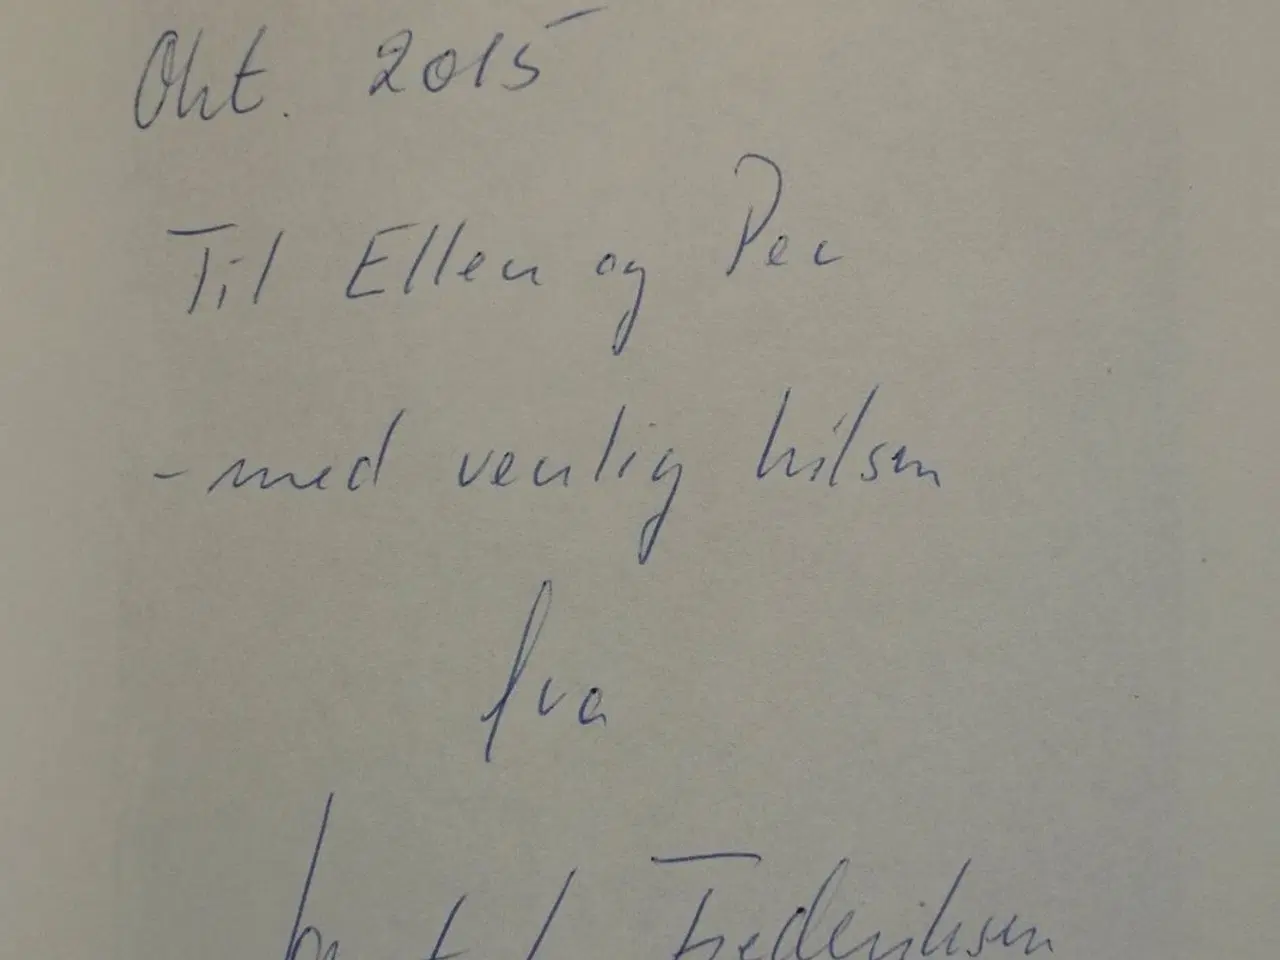 Okt. 2015
Til Ellen og Per
- med venlig hilsen
fra
Frederiksen